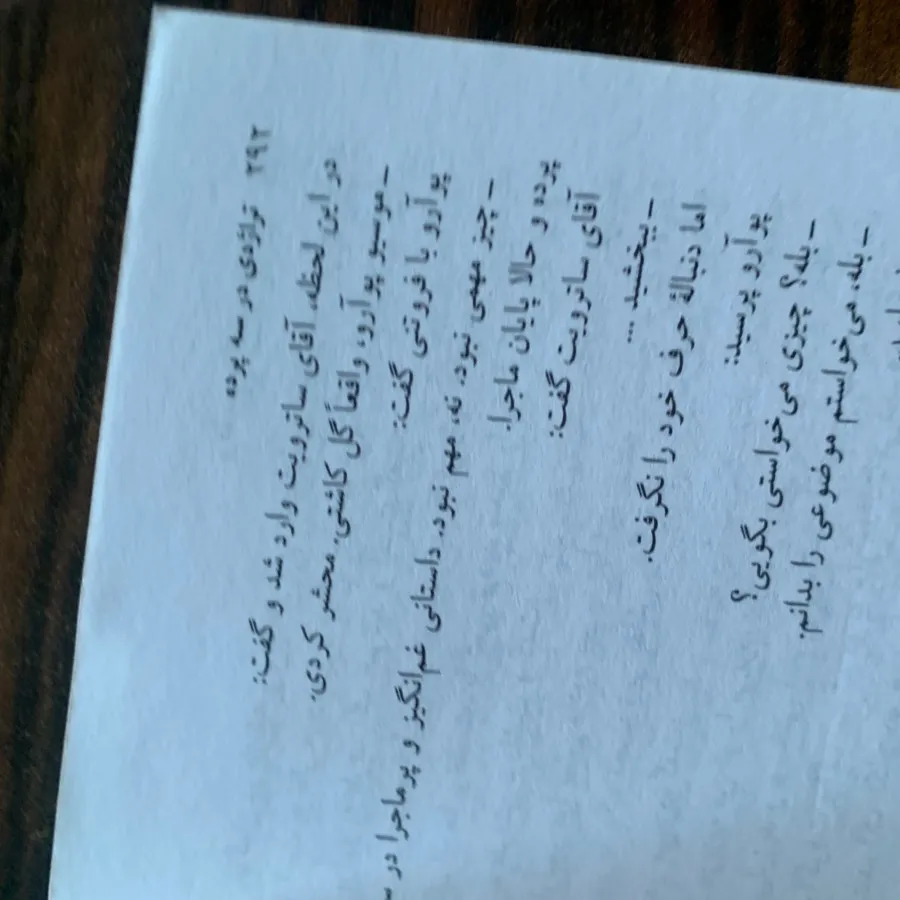 ۲۹۲ تراژدی در سه پرده
در این لحظه، آقای ساترویت وارد شد و گفت:
ـ موسیو پوآرو، واقعاً گل کاشتی. محشر کردی.
پوآرو با فروتنی گفت:
ـ چیز مهمی نبود. نه، مهم نبود. داستانی غم‌انگیز و پرماجرا در
پرده و حالا پایان ماجرا.
آقای ساترویت گفت:
ـ ببخشید ...
اما دنبالهٔ حرف خود را نگرفت.
پوآرو پرسید:
ـ بله؟ چیزی می‌خواستی بگویی؟
ـ بله، می‌خواستم موضوعی را بدانم.